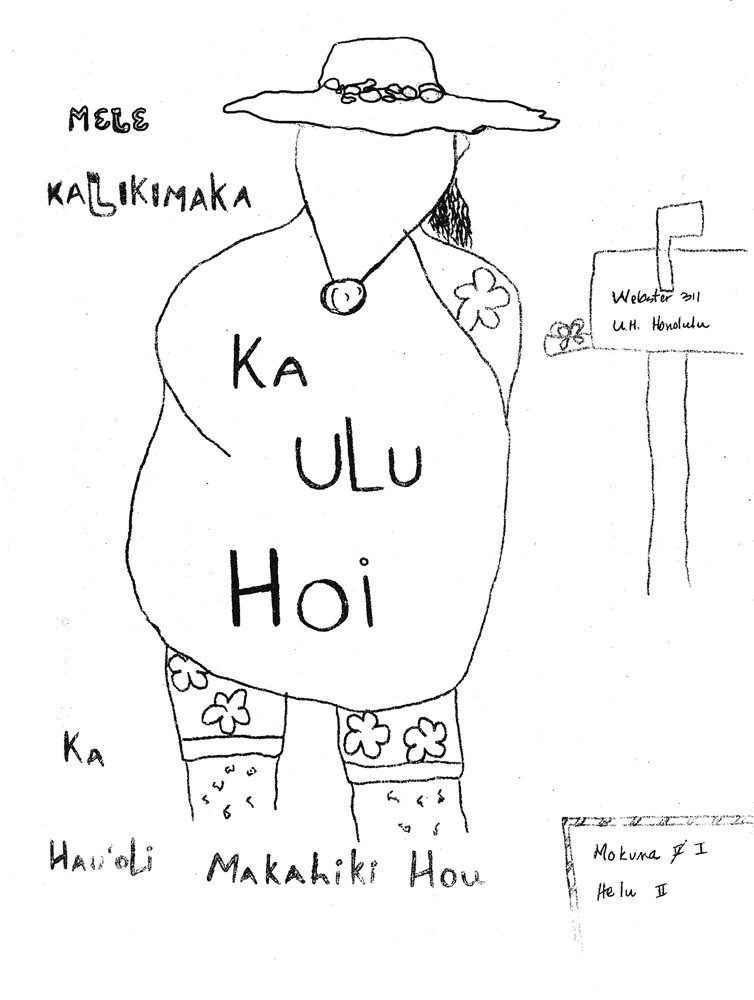 MELE
KALLIKIMAKA
Webster 311
U.H. Honolulu
KA
ULU
HOi
KA
HAU'OLi MAKAHIKI HOU
Mokuna I
Helu II